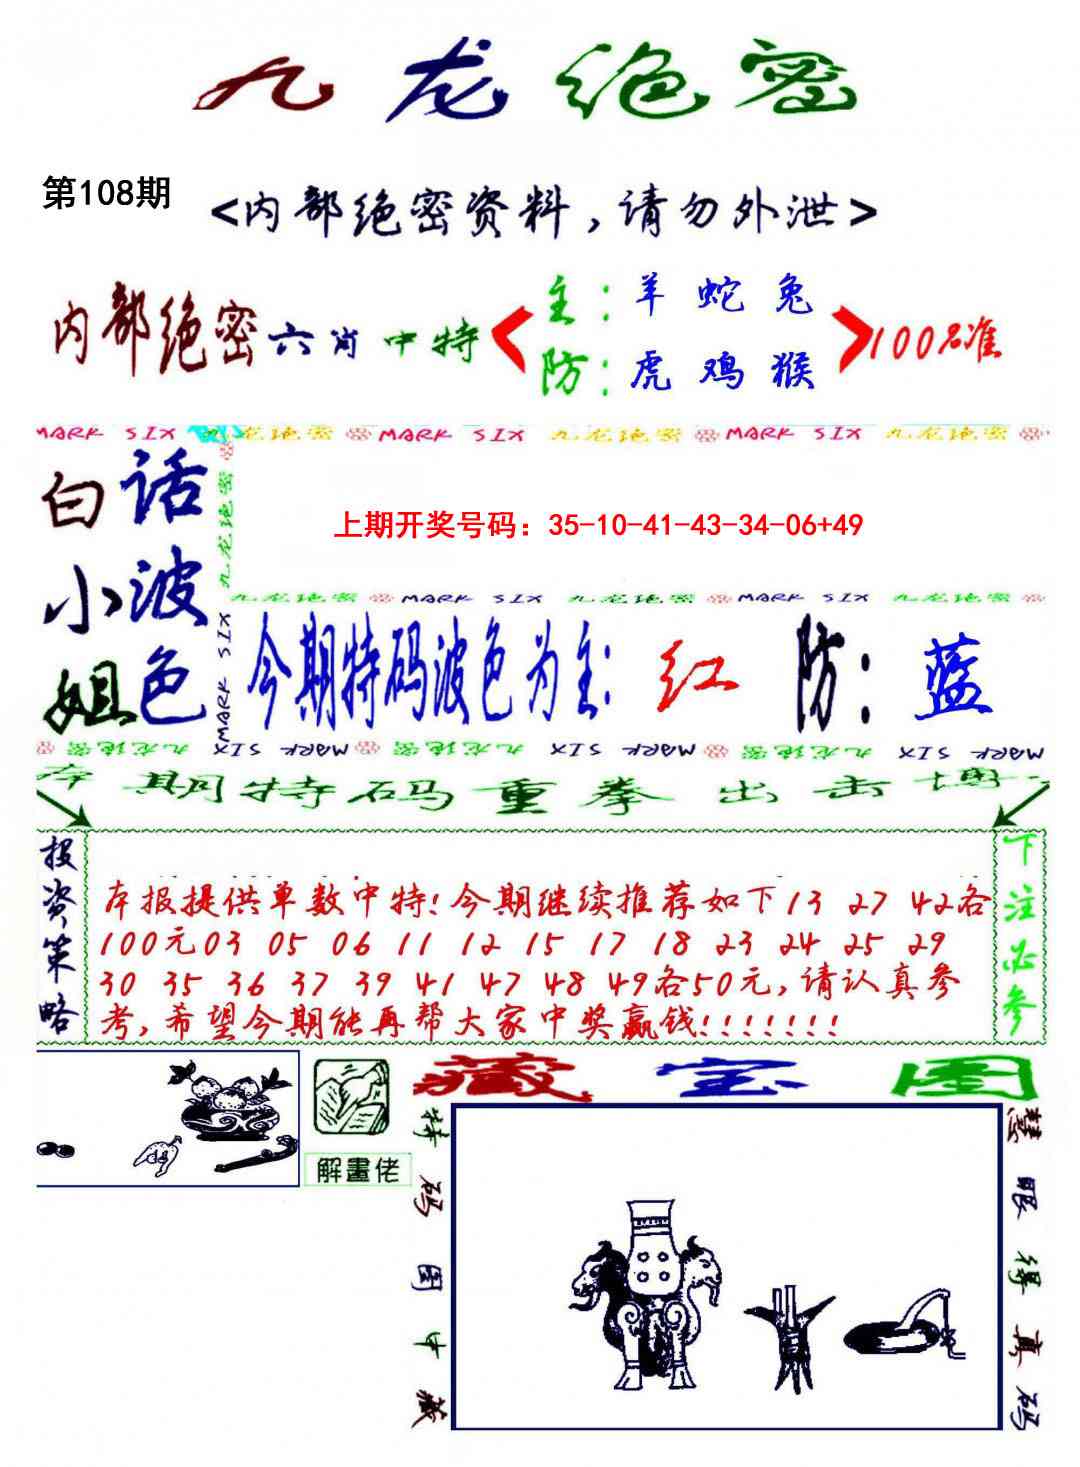 九龙绝密
第108期
<内部绝密资料,请勿外泄>
内部绝密六肖中特
主:羊 蛇 兔
防:虎 鸡 猴
100%准
MARK SIX 九龙绝密 MARK SIX 九龙绝密 MARK SIX 九龙绝密
白小姐
话波色
九龙绝密 MARK SIX
上期开奖号码：35-10-41-43-34-06+49
九龙绝密 MARK SIX 九龙绝密 MARK SIX 九龙绝密
今期特码波色为主:红 防:蓝
九龙绝密 MARK SIX 九龙绝密 MARK SIX 九龙绝密 MARK SIX
本期特码重拳出击博
投资策略
下注必参
本报提供单数中特!今期继续推荐如下13 27 42各
100元03 05 06 11 12 15 17 18 23 24 25 29
30 35 36 37 39 41 47 48 49各50元,请认真参
考,希望今期能再帮大家中奖赢钱!!!!!!!
解畫佬
藏宝图
特码图中藏
慧眼得真码